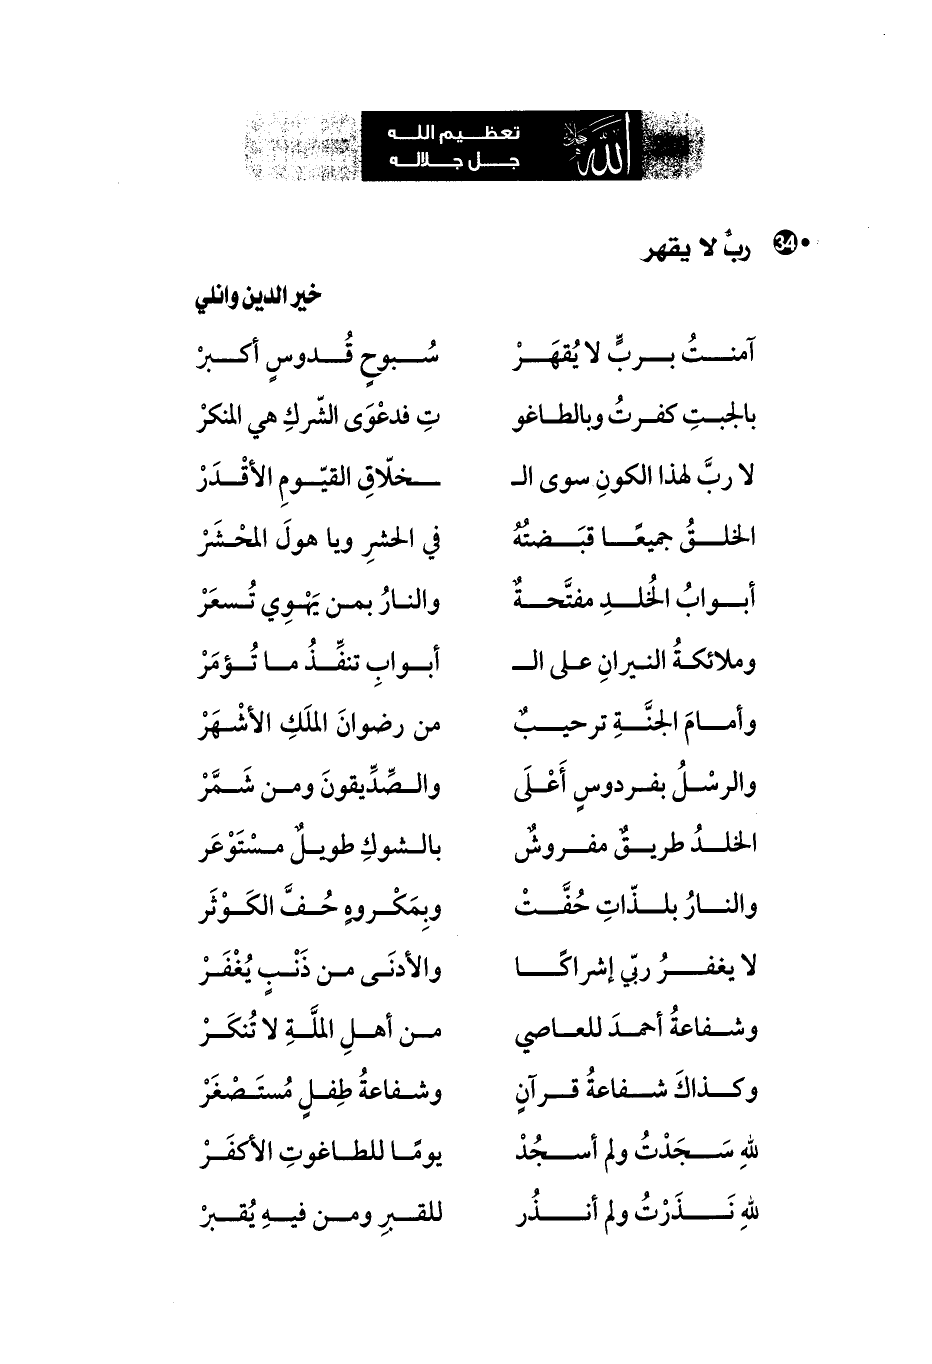 تعظيم الله
جل جلاله
الله جل جلاله
34 • ربٌّ لا يقهر
خير الدين وانلي
آمنتُ بربٍّ لا يُقهَرْ سُبوحٍ قُدوسٍ أكبرْ
بالجبتِ كفرتُ وبالطاغو تِ فدعْوَى الشّركِ هي المنكرْ
لا ربَّ لهذا الكونِ سوى الـ ـخلّاقِ القيّومِ الأقْدَرْ
الخلقُ جميعًا قبَضتُهُ في الحشرِ ويا هولَ المحْشَرْ
أبوابُ الخُلدِ مفتَّحةٌ والنارُ بمن يَهْوِي تُسعَرْ
وملائكةُ النيرانِ على الـ أبوابِ تنفِّذُ ما تُؤمَرْ
وأمامَ الجنَّةِ ترحيبٌ من رضوانَ الملَكِ الأشْهَرْ
والرسْلُ بفردوسٍ أَعْلَى والصِّدِّيقونَ ومن شَمَّرْ
الخلدُ طريقٌ مفروشٌ بالشوكِ طويلٌ مسْتَوْعَر
والنارُ بلذّاتِ حُفَّتْ وبِمَكْروهٍ حُفَّ الكَوْثَر
لا يغفرُ ربّي إشراكًا والأدنَى من ذَنْبٍ يُغْفَرْ
وشفاعةُ أحمدَ للعاصي من أهلِ الملَّةِ لا تُنكَرْ
وكذاكَ شفاعةُ قرآنٍ وشفاعةُ طِفلٍ مُستَصْغَرْ
للهِ سَجَدْتُ ولم أسجُدْ يومًا للطاغوتِ الأكفَرْ
للهِ نَذَرْتُ ولم أنذُر للقبرِ ومن فيهِ يُقبرْ